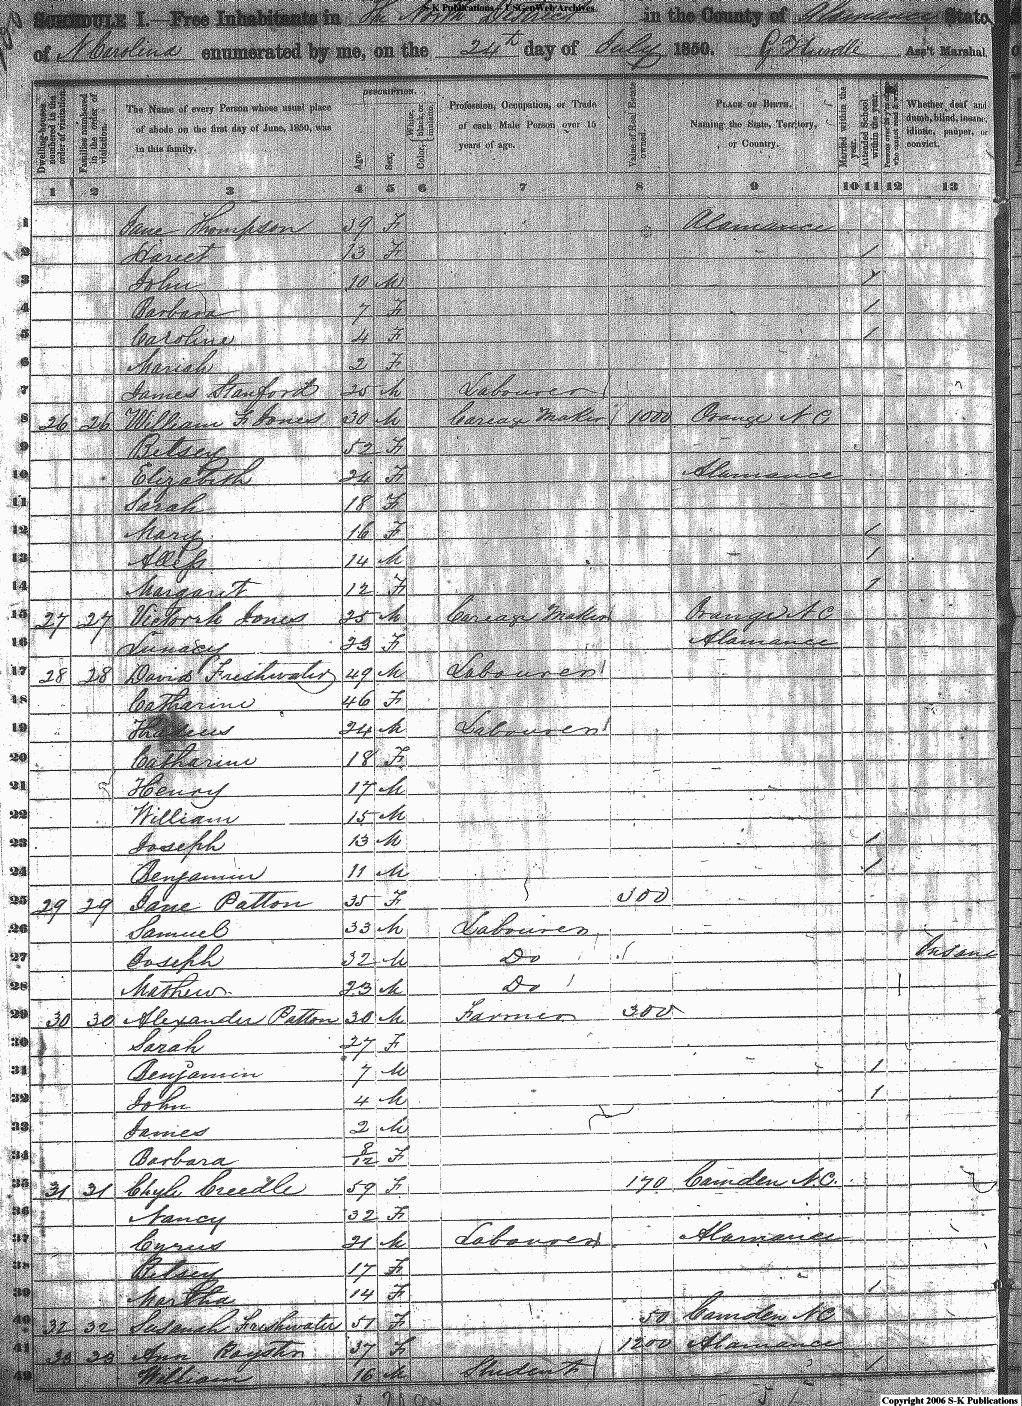 S-K Publications – USGenWeb Archives
SCHEDULE I.—Free Inhabitants in The North District in the County of Alamance State
of N Carolina enumerated by me, on the 24th day of July 1850. G Hurdle Ass't Marshal
Dwelling-houses numbered in the order of visitation.
Families numbered in the order of visitation.
The Name of every Person whose usual place of abode on the first day of June, 1850, was in this family.
DESCRIPTION.
Age.
Sex.
Color, White, black, or mulatto.
Profession, Occupation, or Trade of each Male Person over 15 years of age.
Value of Real Estate owned.
PLACE OF BIRTH, Naming the State, Territory, or Country.
Married within the year.
Attended School within the year.
Whether deaf and dumb, blind, insane, idiotic, pauper, or convict.
1 2 3 4 5 6 7 8 9 10 11 12 13
1 Jane Thompson 39 F Alamance
2 Hariet 13 F 1
3 John 10 M 1
4 Barbara 7 F 1
5 Caroline 4 F 1
6 Mariah 2 F
7 James Stanford 25 M Labourer
8 26 26 William F Jones 30 M Careage Maker 1000 Orange N C
9 Betsey 52 F
10 Elizabeth 24 F Alamance
11 Sarah 18 F
12 Mary 16 F 1
13 14 M 1
14 Margaret 12 F 1
15 27 27 Jones 25 M Careage Maker Orange N C
16 23 F Alamance
17 28 28 David Freshwater 49 M Labourer
18 Catharine 46 F
19 24 M Labourer
20 Catharine 18 F
21 Henry 17 M
22 William 15 M
23 Joseph 13 M 1
24 Benjamin 11 M 1
25 29 29 Jane Patton 35 F 300
26 Samuel 33 M Labourer
27 Joseph 32 M Do Insane
28 Mathew 23 M Do 1
29 30 30 Alexander Patton 30 M Farmer 300
30 Sarah 27 F
31 Benjamin 7 M 1
32 John 4 M 1
33 James 2 M
34 Barbara 8/12 F
35 31 31 Creedle 59 F 170 Camden N.C.
36 Nancy 32 F
37 Cyrus 21 M Labourer Alamance
38 Betsey 17 F
39 Martha 14 F 1
40 32 32 Susanah Freshwater 51 F 50 Camden N C
41 33 33 Ann Boystin 37 F 1200 Alamance
42 William 16 M Student 1
Copyright 2006 S-K Publications